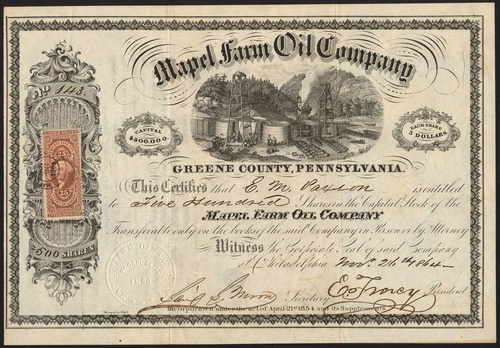 Mapel Farm Oil Company
No 143.
CAPITAL
$500,000
EACH SHARE
5 DOLLARS
GREENE COUNTY, PENNSYLVANIA.
This Certifies that E. M. Paxson is entitled
to Five Hundred Shares in the Capital Stock of the
MAPEL FARM OIL COMPANY
Transferable only on the books of the said Company in Person or by Attorney
Witness the Corporate Seal of said Company
at Philadelphia Nov. 26th 1864
500 SHARES
Secretary
President
Incorporated under the act of April 21st 1854 and its Supplements